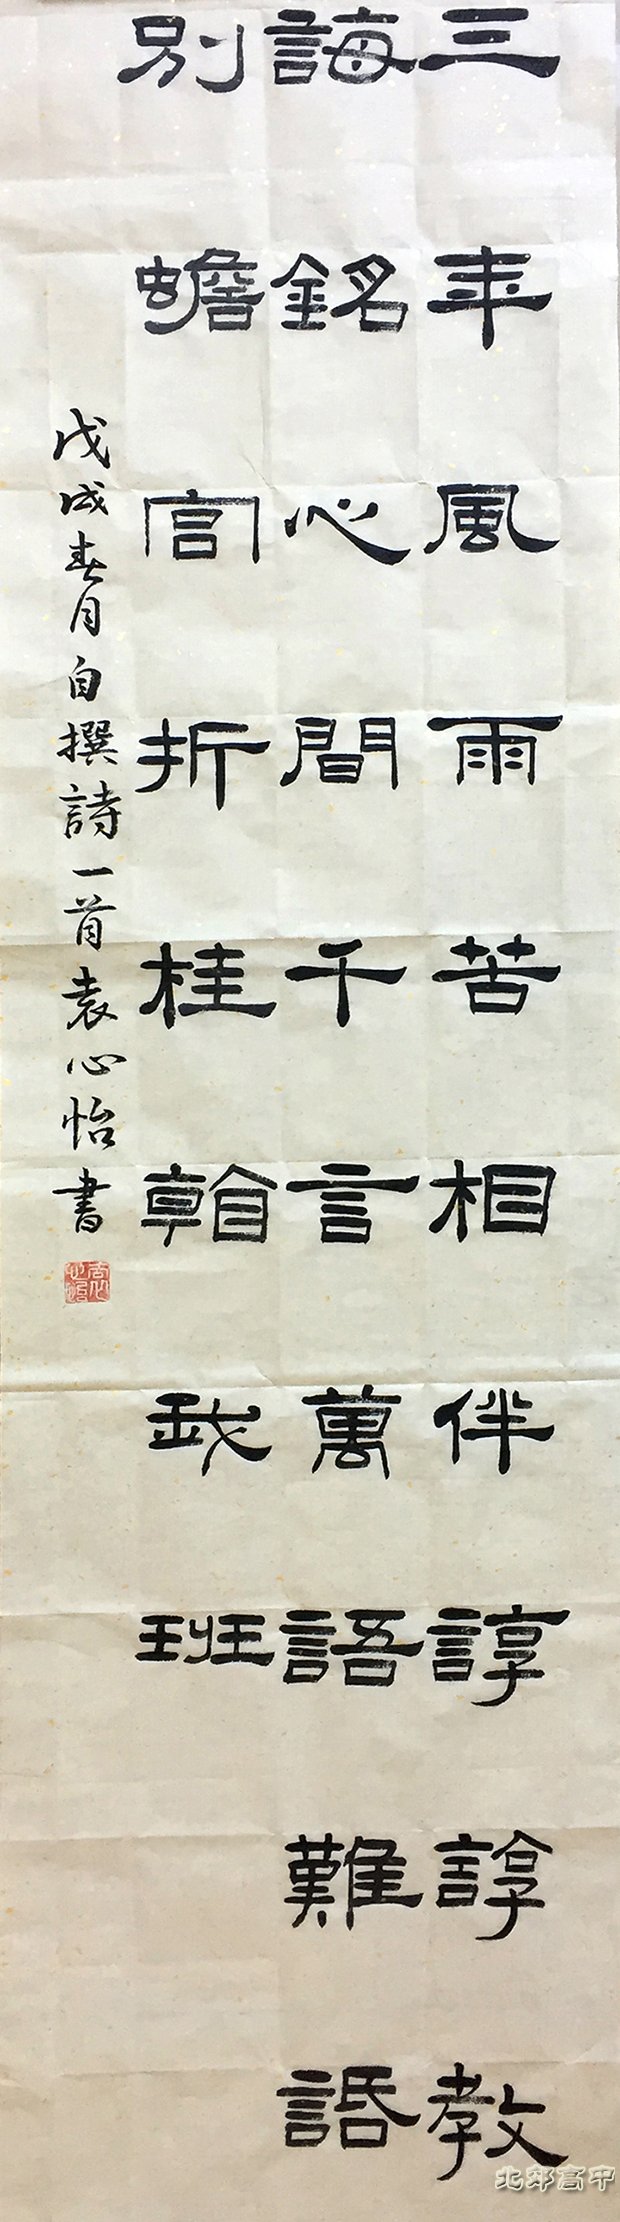 三年風雨苦相伴諄諄教
誨銘心間千言萬語難話
別蟾宮折桂看我班
戊戌春月自撰詩一首袁心怡書
北郊高中